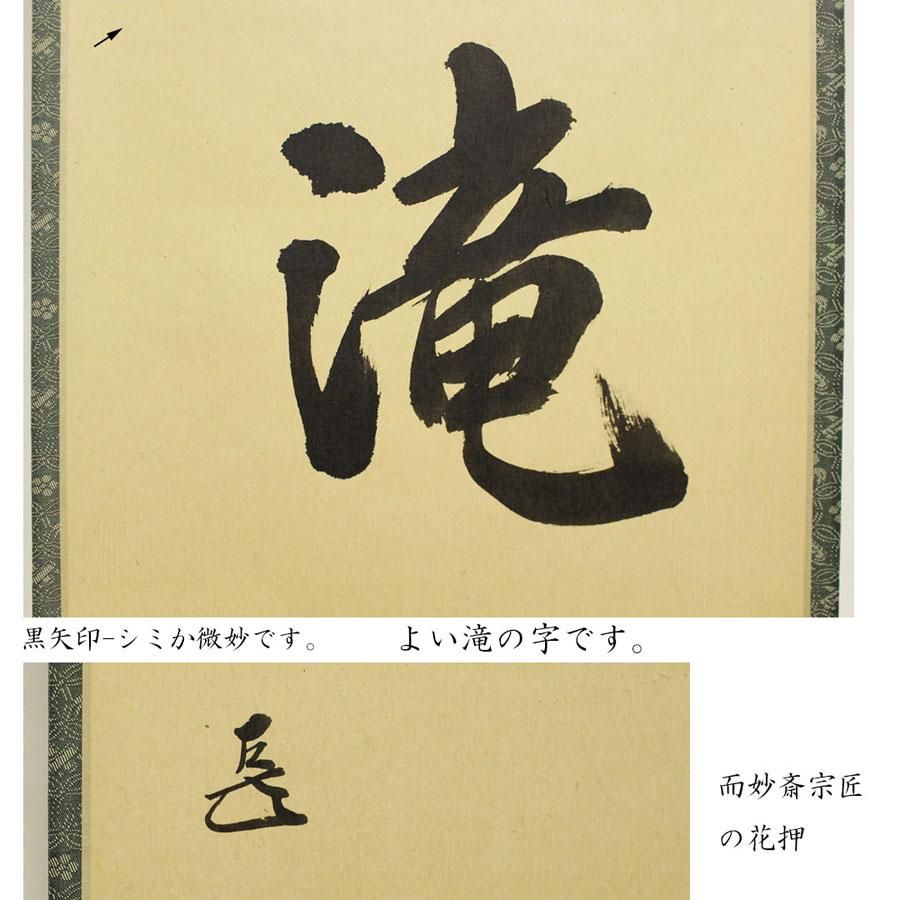 滝
黒矢印-シミか微妙です。
よい滝の字です。
而妙斎宗匠
の花押